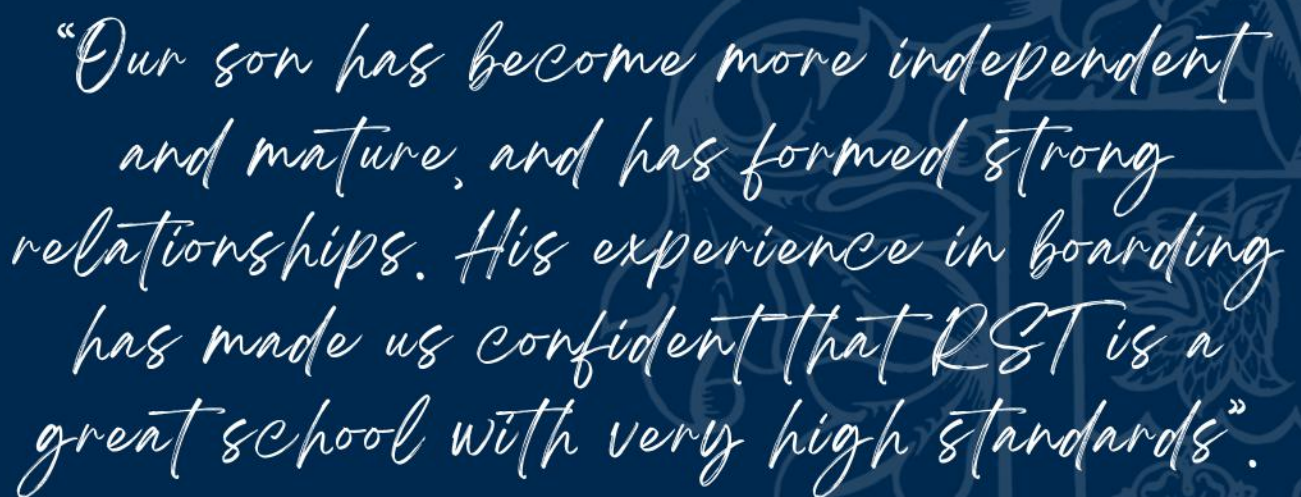 “Our son has become more independent
and mature, and has formed strong
relationships. His experience in boarding
has made us confident that RST is a
great school with very high standards”.